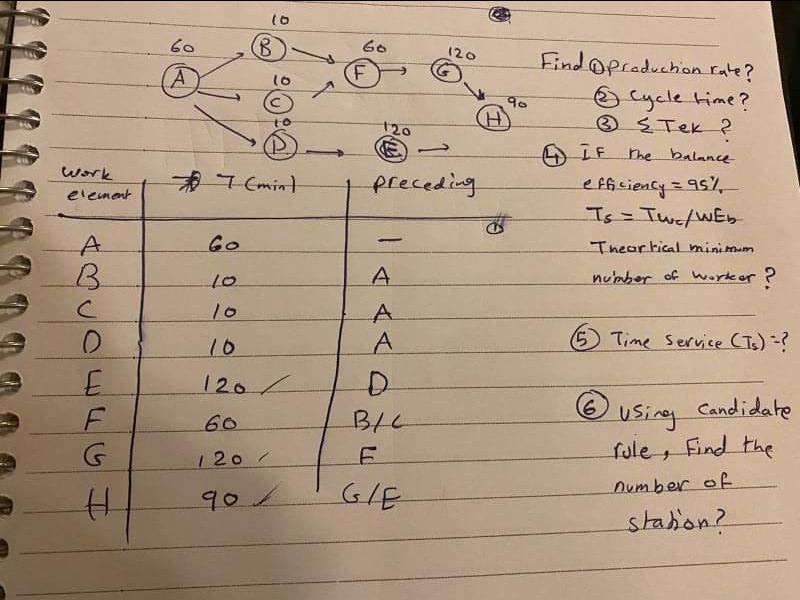 10
60
B
60
120
A
10
F
G
C
90
10
H
D
120
E
Find ① Production rate?
② Cycle time?
③ Σ Tek ?
④ IF the balance
efficiency = 95%
Ts = Twc/wEb
Theortical minimum
number of worker ?
⑤ Time Service (Ts) = ?
⑥ Using Candidate
rule, Find the
number of
station?
work element T (min) preceding
A 60 —
B 10 A
C 10 A
D 10 A
E 120 D
F 60 B/C
G 120 F
H 90 G/E